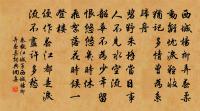 西城楊柳弄春
柔動離憂淚難收
猶記多情曾為繫歸舟
碧野朱橋當日事
人不見水空流
韶華不為少年留
恨悠悠幾時休
飛絮落花時候一
登樓
便做春江都是淚
流不盡許多愁